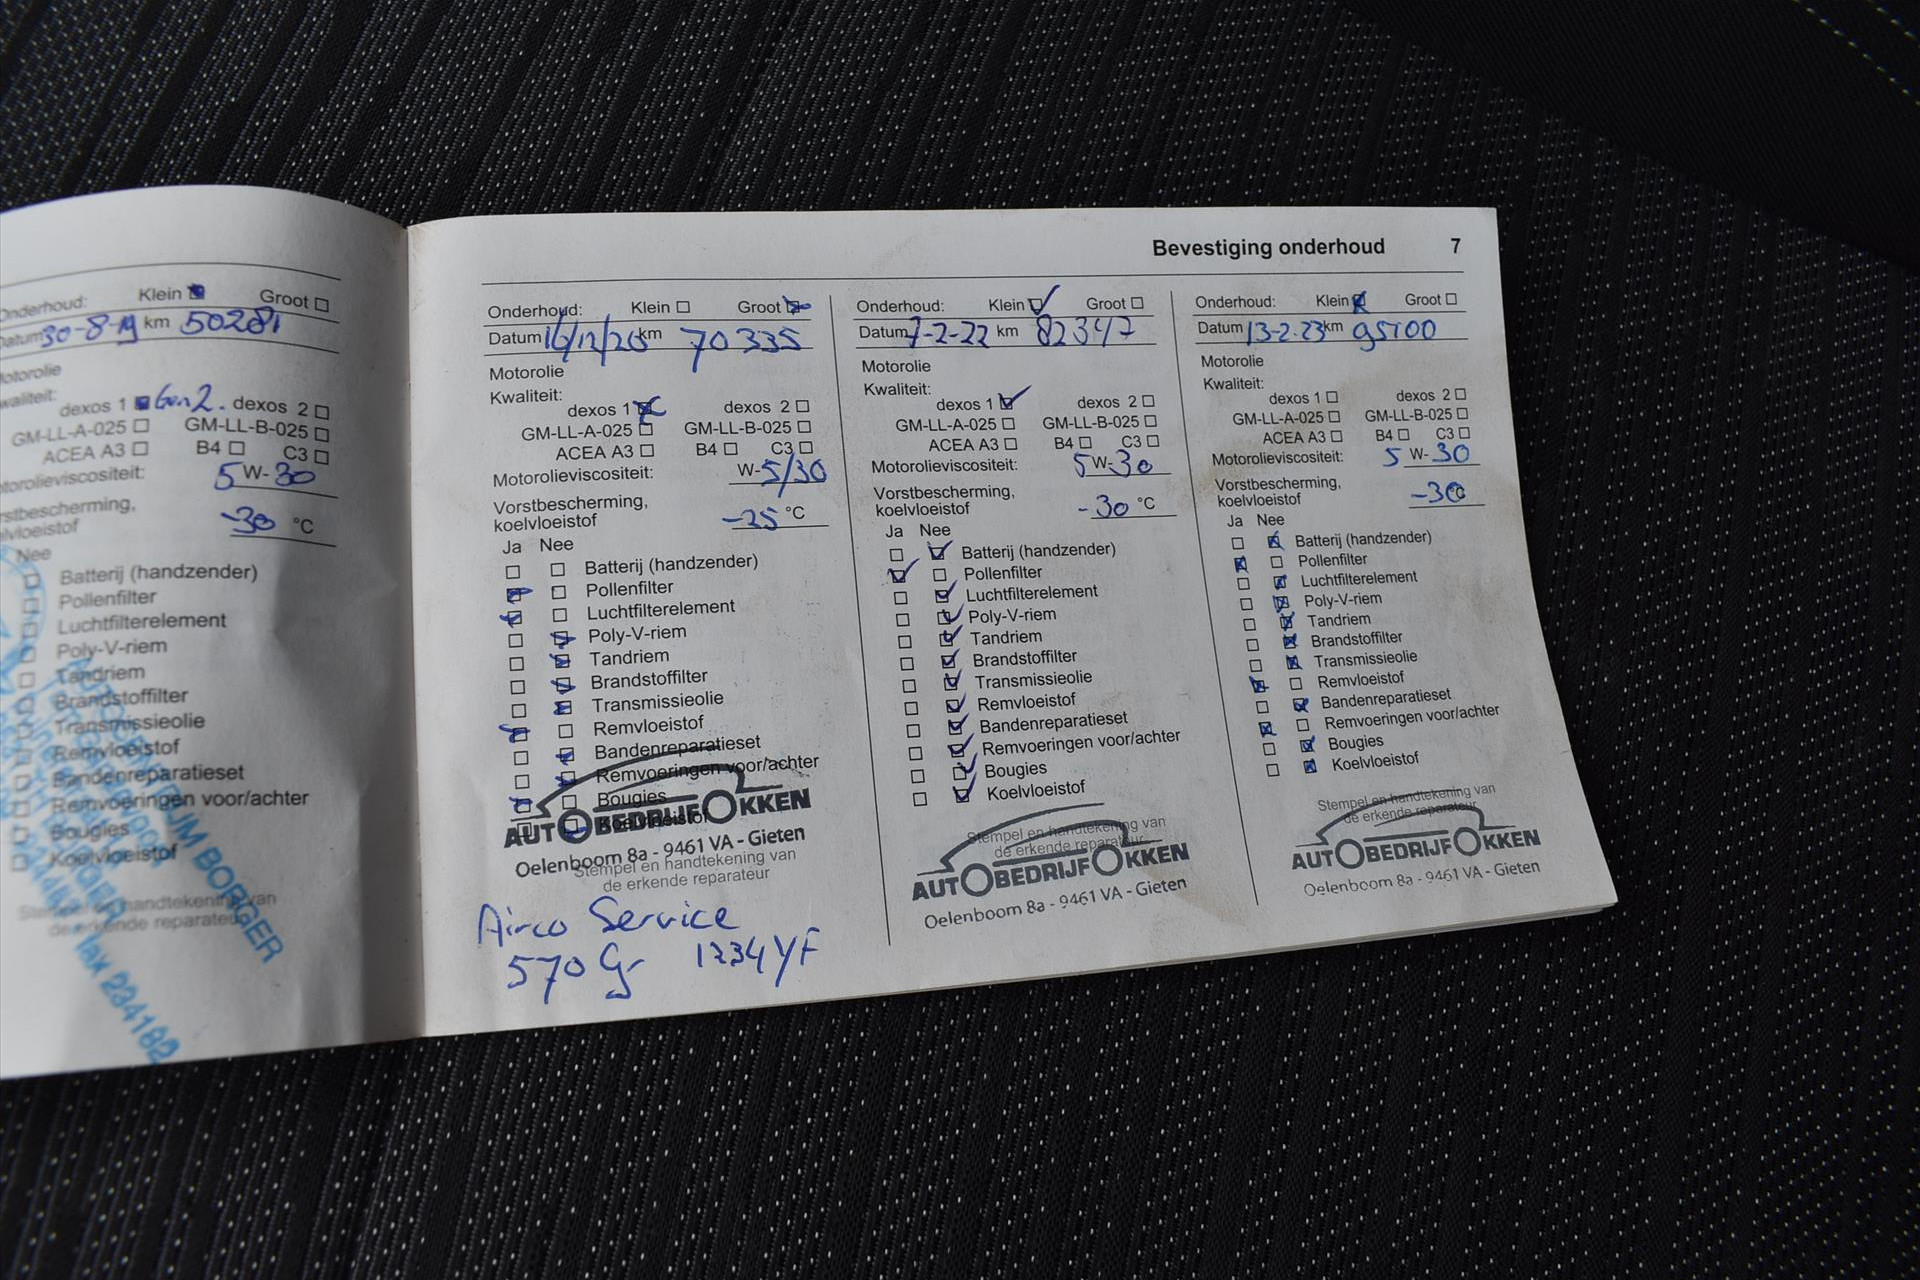 Onderhoud: Klein Groot
Datum 30-8-19 km 50281
Motorolie
Kwaliteit:
dexos 1 Gen 2. dexos 2
GM-LL-A-025 GM-LL-B-025
ACEA A3 B4 C3
Motorolieviscositeit: 5 W-30
Vorstbescherming,
koelvloeistof -30 °C
Nee
Batterij (handzender)
Pollenfilter
Luchtfilterelement
Poly-V-riem
Tandriem
Brandstoffilter
Transmissieolie
Remvloeistof
Bandenreparatieset
Remvoeringen voor/achter
Bougies
Koelvloeistof
Stempel en handtekening van
de erkende reparateur
BORGER
fax 234182
Bevestiging onderhoud 7
Onderhoud: Klein Groot
Datum km 70335
Motorolie
Kwaliteit:
dexos 1 dexos 2
GM-LL-A-025 GM-LL-B-025
ACEA A3 B4 C3
Motorolieviscositeit: W-5/30
Vorstbescherming,
koelvloeistof -25 °C
Ja Nee
Batterij (handzender)
Pollenfilter
Luchtfilterelement
Poly-V-riem
Tandriem
Brandstoffilter
Transmissieolie
Remvloeistof
Bandenreparatieset
Remvoeringen voor/achter
Bougies
Koelvloeistof
AUTOBEDRIJF OKKEN
Oelenboom 8a - 9461 VA - Gieten
Stempel en handtekening van
de erkende reparateur
Airco Service
570 Gr 1234YF
Onderhoud: Klein Groot
Datum 7-2-22 km 82347
Motorolie
Kwaliteit:
dexos 1 dexos 2
GM-LL-A-025 GM-LL-B-025
ACEA A3 B4 C3
Motorolieviscositeit: 5 W-30
Vorstbescherming,
koelvloeistof -30 °C
Ja Nee
Batterij (handzender)
Pollenfilter
Luchtfilterelement
Poly-V-riem
Tandriem
Brandstoffilter
Transmissieolie
Remvloeistof
Bandenreparatieset
Remvoeringen voor/achter
Bougies
Koelvloeistof
Stempel en handtekening van
de erkende reparateur
AUTOBEDRIJF OKKEN
Oelenboom 8a - 9461 VA - Gieten
Onderhoud: Klein Groot
Datum 13-2-23 km 95100
Motorolie
Kwaliteit:
dexos 1 dexos 2
GM-LL-A-025 GM-LL-B-025
ACEA A3 B4 C3
Motorolieviscositeit: 5 W-30
Vorstbescherming,
koelvloeistof -30 °C
Ja Nee
Batterij (handzender)
Pollenfilter
Luchtfilterelement
Poly-V-riem
Tandriem
Brandstoffilter
Transmissieolie
Remvloeistof
Bandenreparatieset
Remvoeringen voor/achter
Bougies
Koelvloeistof
Stempel en handtekening van
de erkende reparateur
AUTOBEDRIJF OKKEN
Oelenboom 8a - 9461 VA - Gieten